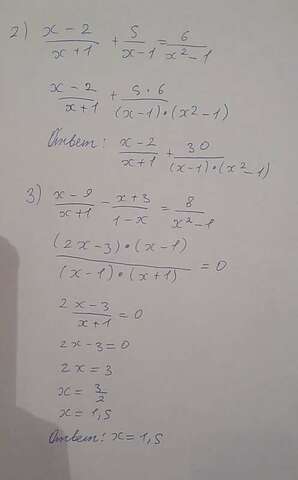 2) x-2/x+1 + 5/x-1 = 6/x²-1
x-2/x+1 + 5·6/(x-1)·(x²-1)
Ответ: x-2/x+1 + 30/(x-1)·(x²-1)
3) x-9/x+1 - x+3/1-x = 8/x²-1
(2x-3)·(x-1)/(x-1)·(x+1) = 0
2x-3/x+1 = 0
2x-3=0
2x=3
x=3/2
x=1,5
Ответ: x=1,5